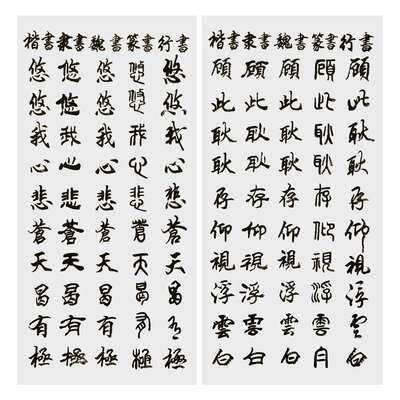 楷書隶書魏書篆書行書
悠悠我心悲蒼天曷有極
悠悠我心悲蒼天曷有極
悠悠我心悲蒼天曷有極
悠悠我心悲蒼天曷有極
悠悠我心悲蒼天曷有極
楷書隶書魏書篆書行書
顧此耿耿存仰視浮雲白
顧此耿耿存仰視浮雲白
顧此耿耿存仰視浮雲白
顧此耿耿存仰視浮雲白
顧此耿耿存仰視浮雲白